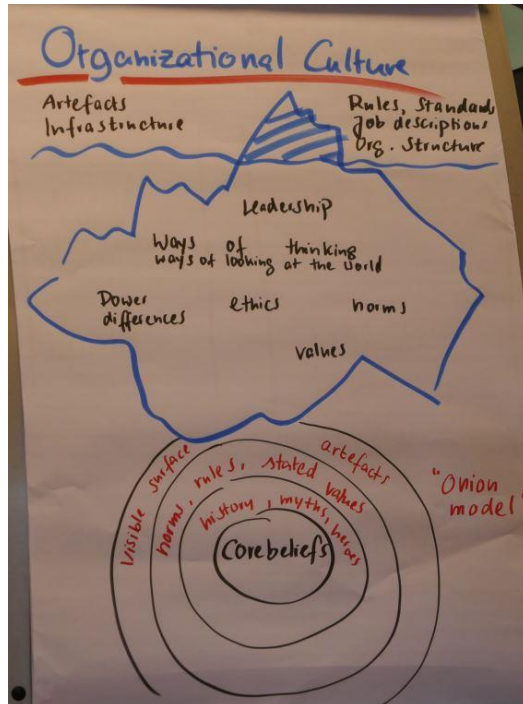 Organizational Culture
Artefacts
Infrastructure
Rules, Standard
Job descriptions
Org. Structure
Leadership
Ways of thinking
ways of looking at the world
Power
differences
ethics
norms
values
visible surface
artefacts
norms, rules, stated values
history, myths, heroes
Core beliefs
"Onion
model"